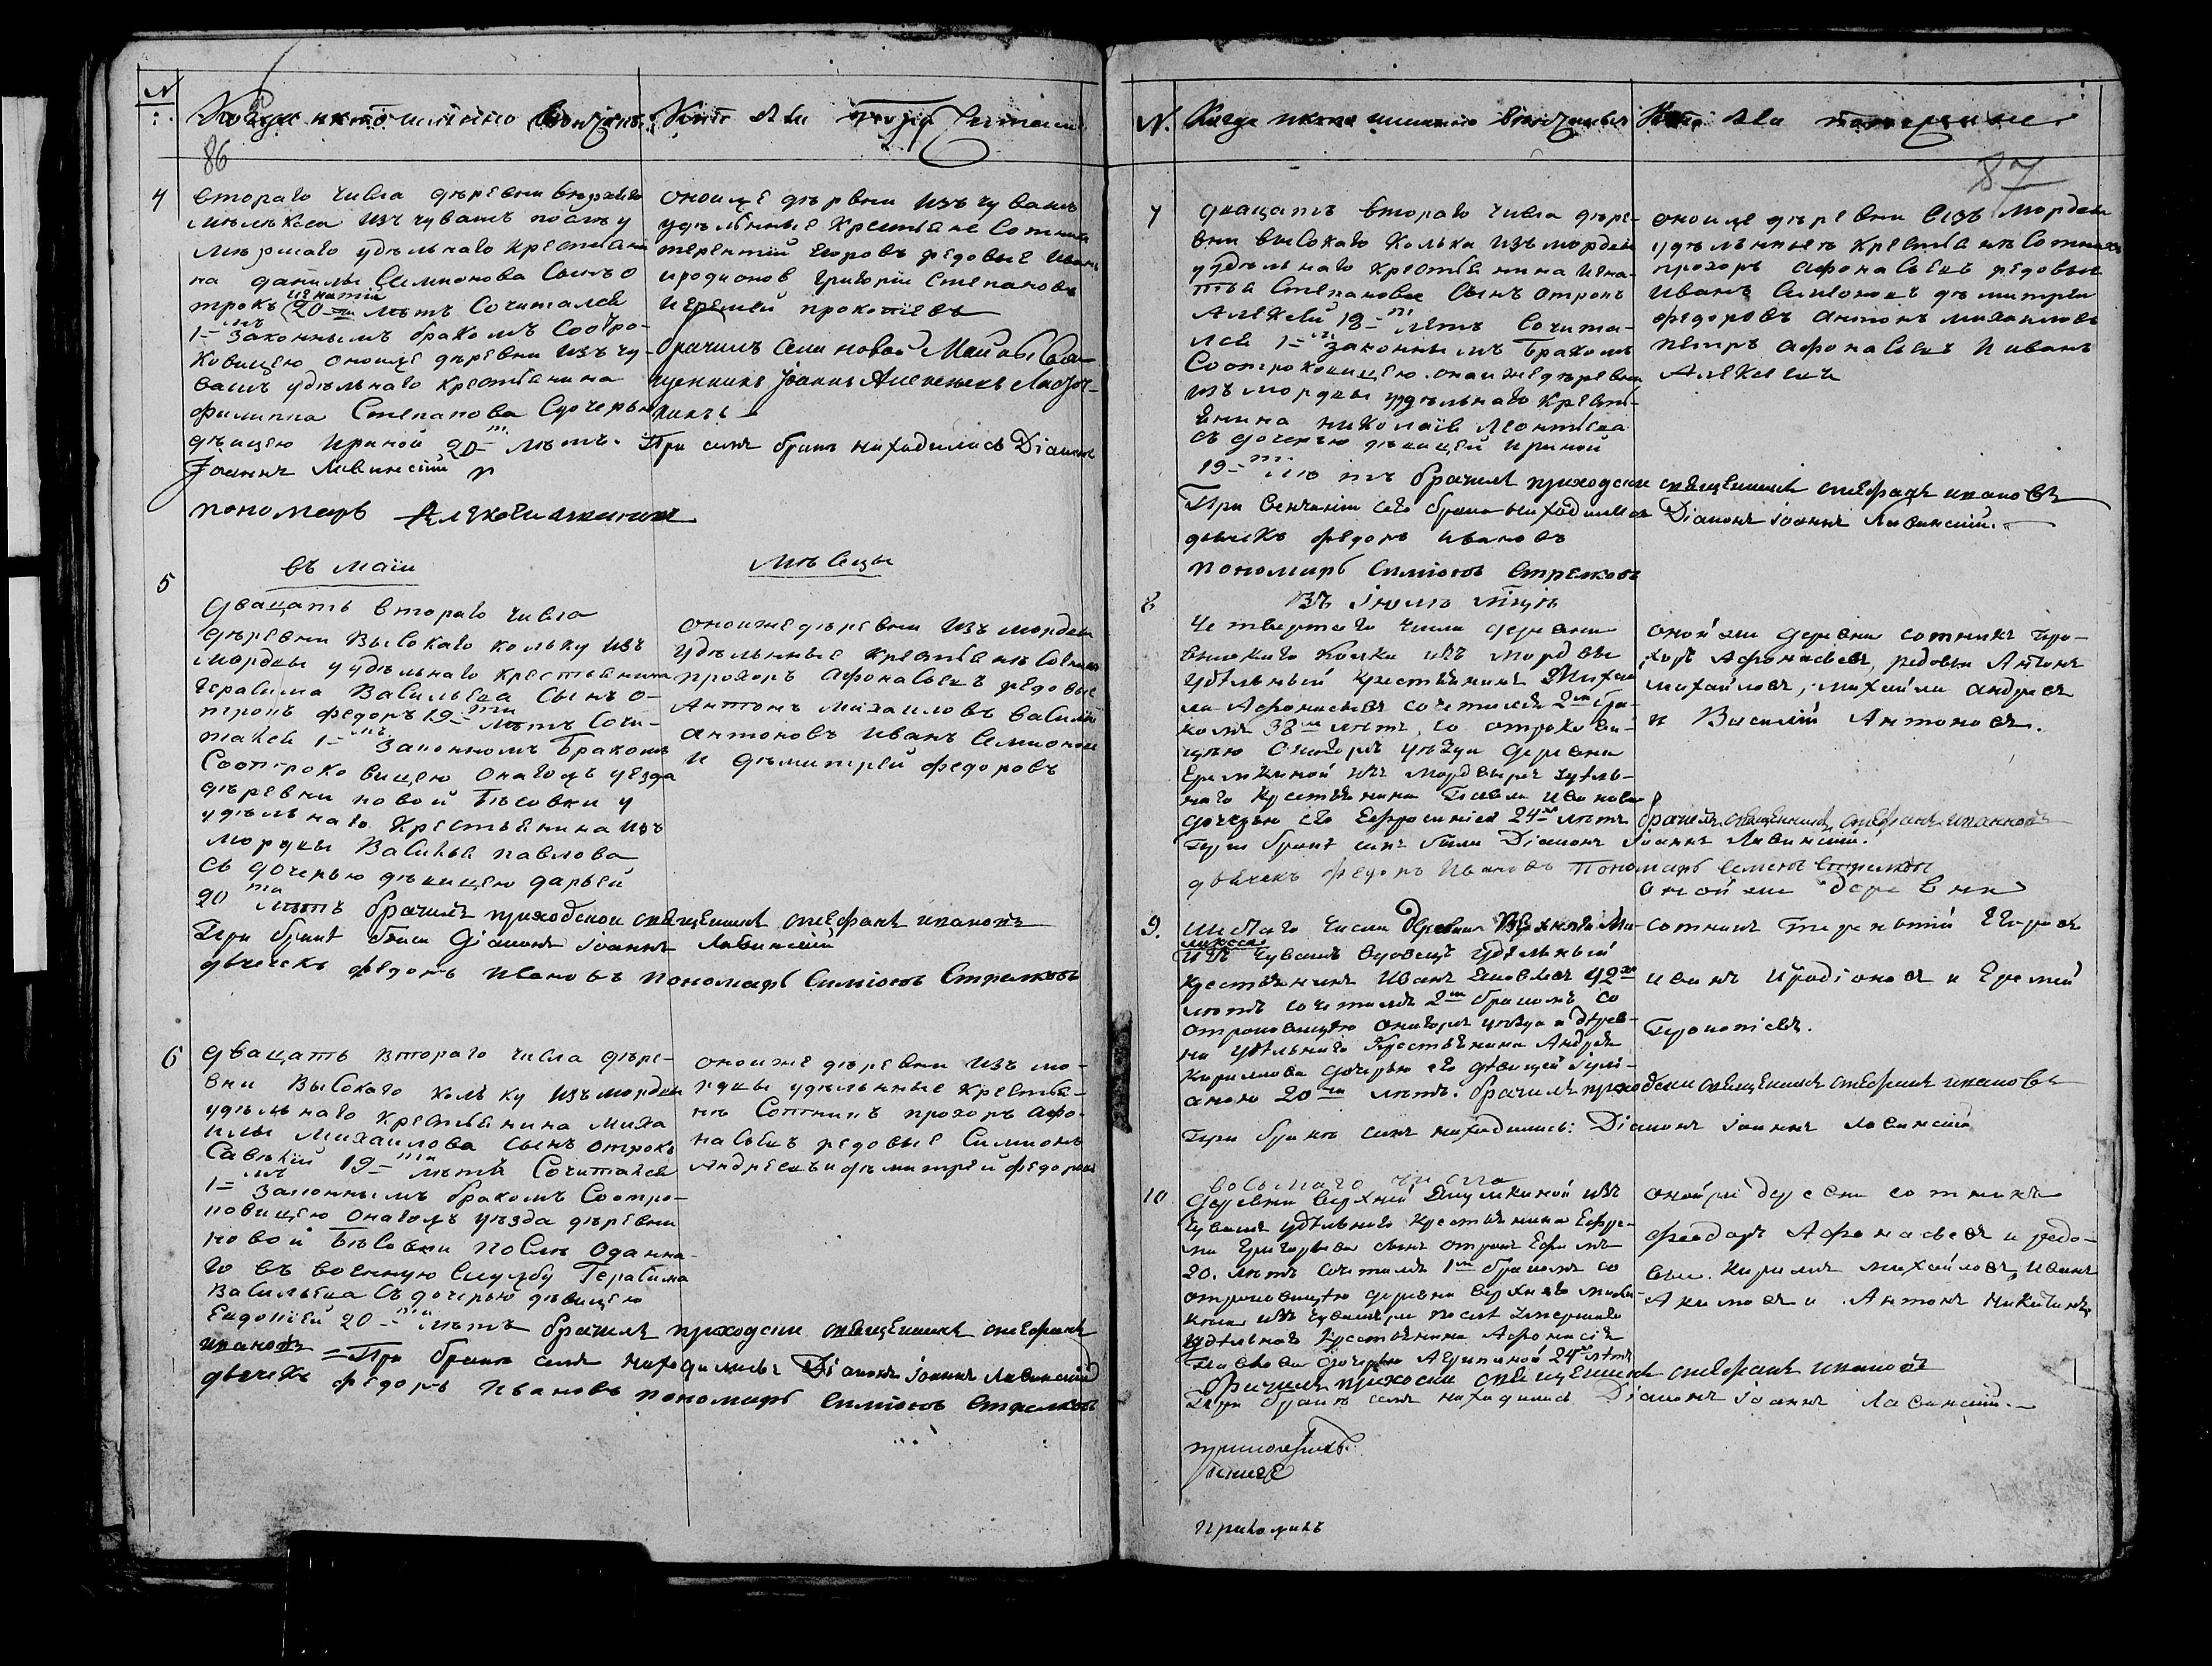 N
Когда и кто именно венчаны
Кто были
86
4
втораго числа деревни верхняго
мелекеса изъ чувашъ послѣ у
мѣршаго удѣльнаго крестьяни
на данилы Симионова сынъ о
трокъ игнатій 20-ти лѣтъ сочитался
1-мъ законнымъ бракомъ соотро-
ковицею оноиже дѣревни изъ чу-
вашъ удѣльнаго крестьянина
филиппа Степанова Сдочерью
дѣвицею ириной 20-ти лѣтъ.
Іоаннъ Лавинскій
пономарь
оноиже дѣрвни изъ чувашъ
удѣльные крестьяне Сотникъ
терентій егоровъ редовые иванъ
иродионов григории степановъ
иеремей прокопиевъ
брачилъ села новой Маины свя-
щенникъ Іоаннъ Алексѣевъ
При семъ бракѣ находились Діаконъ
5
въ маии
мѣсецы
двацать втораго числа
дѣревни Высокаго кольку изъ
мордвы у удѣльнаго крестьянина
герасима Васильева сынъ о-
трокъ федоръ 19-ти лѣтъ Сочи-
тался 1-мъ законномъ Бракомъ
Соотроковицею онагожъ уезда
дѣревни новой Бѣсовки у
удѣльнаго крестьянина изъ
мордвы Василья павлова
съ дочерью дѣвицею дарьей
20 ти лѣтъ брачилъ приходскои священникъ стефанъ ивановъ
При бракѣ были Діаконъ Іоаннъ Лавинскій
дьячекъ федоръ ивановъ пономарь Симіонъ Стрелковъ
оноиже дѣревни изъ мордвы
удѣльные крестьянѣ Сотникъ
прохоръ афонасьевъ редовые
Антонъ Михаиловъ василий
антоновъ иванъ Семионов
и дѣмитрей федоровъ
6
двацать втораго числа дѣре-
вни Высокаго кольку изъ мордвы
удѣльнаго крестьянина миха
илы Михаилова сынъ отрокъ
Савѣлий 19-ти лѣтъ Сочитался
1-мъ законнымъ бракомъ Соотро-
ковицею онагожъ уѣзда дѣревни
новой Бѣсовки послѣ оданна-
го въ военную Службу Герасима
Васильева съ дочерью дѣвицею
Евдокией 20-ти лѣтъ брачилъ приходски священникъ стефанъ
ивановъ = При бракѣ семъ находились Діаконъ Іоаннъ Лавинскій
дьячекъ федоръ Ивановъ пономарь Симіонъ Стрелковъ
оноиже дѣревни изъ мо-
рдвы удельные крестья-
нѣ Сотникъ прохоръ афо-
насьевъ редовые Симионъ
Андреевъ и дѣмитрей федоровъ
N.
Когда и кто именно венчаны
Кто были
87
7
двацать втораго числа дѣре-
вни высокаго Колька изъ мордвы
у удѣльнаго крестьянина игна-
тья Степановае сынъ отрокъ
Алексей 18-ти лѣтъ Сочита-
лся 1-мъ законнымъ Бракомъ
Соотроковицею онаиже дѣревни
изъ мордвы удѣльнаго крест-
янина николаия Леонтьева
съ дочерью дѣвицей ириной
19-ти лѣтъ брачилъ приходски священникъ стефанъ ивановъ
При венчаніи сего брака находились Діаконъ Іоаннъ Лавинскій.
дьячекъ федоръ ивановъ
пономарь Симіонъ Стрелковъ
оноице дѣревни изъ мордвы
удѣльныехъ крестьянъ Сотникъ
прохоръ афонасьевъ редовыи
иванъ Симионовъ дѣмитреи
федоровъ антонъ михаиловъ
петръ афонасьевъ и иванъ
Алексеевъ
8
Въ іюнѣ мцѣ
Четвертаго числа деревни
высокаго Колка изъ мордвы
удѣльный крестьянинъ Михаи
ла Афонасьевъ сочетался 2мъ бра-
комъ 38ми лѣтъ, со отрокови-
цею онагожъ уѣзда деревни
Еремкиной изъ мордвы удѣль-
наго крестьянина Павла Иванова
дочерью его Ефросиніей 24хъ лѣтъ брачилъ священникъ стефанъ ивановъ
При бракѣ семъ были Діаконъ Іоаннъ Лавинскій.
дьячекъ федоръ Ивановъ Пономарь Семенъ Стрелковъ
оной же деревни сотникъ Про-
хоръ Афонасьевъ, редовыи Антонъ
михайловъ, михайла андреевъ
и Василій Антоновъ.
9.
Шестаго числа деревни Верхняго Ме-
лекеса
изъ Чувашъ вдовецъ удѣльный
крестьянинъ Иванъ Яковлевъ 42хъ
лѣтъ сочетался 2мъ бракомъ со
отроковицею онагожъ уѣзда и дерев-
ни удѣльнаго Крестьянина Андрея
Кирилова дочерью его дѣвицей Іулі-
аною 20ти лѣтъ. брачилъ приходски священникъ стефанъ ивановъ
При бракѣ семъ находились: Діаконъ Іоаннъ Лавинскій
оной же деревни
сотникъ Терентій Егоровъ
иванъ Иродіоновъ и Еремей
Прокопіевъ.
10
восьмаго числа
Деревни верхней Якушкиной изъ
чувашъ удѣльнаго крестьянина Ефре-
ма Григорьева сынъ отрокъ Ефимъ
20. лѣтъ сочетался 1мъ бракомъ со
отроковицею деревни верхняго меле-
кеса изъ чувашъ, послѣ умершаго
удѣльнаго Крестьянина Афонасія
Павлова дочерью Агрипиной 24хъ лѣтъ
брачилъ приходски священникъ стефанъ ивановъ
При бракѣ семъ находились Діаконъ Іоаннъ Лавинскій.
онойже деревни сотникъ
Феодоръ Афонасьевъ и редо-
вые. Кирилъ михайловъ, Иванъ
Акимовъ и Антонъ Никитинъ